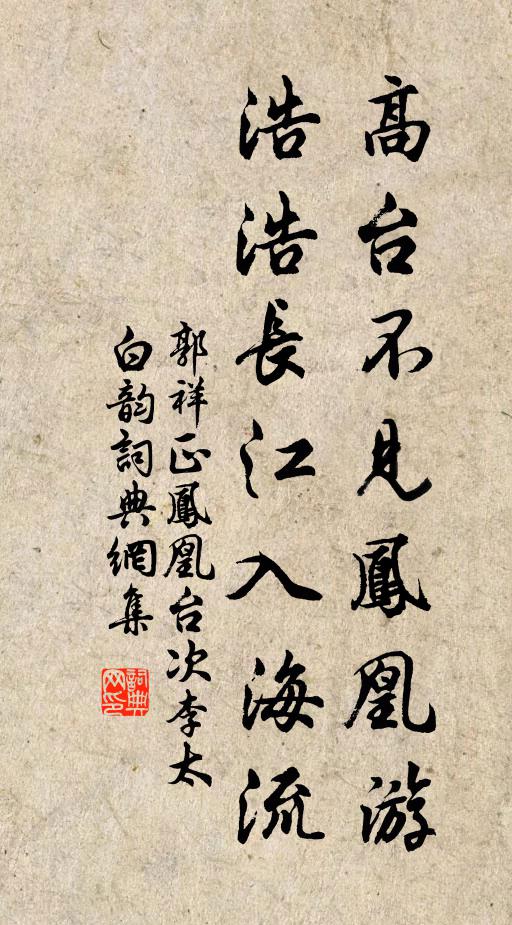 高台不見鳳凰游
浩浩長江入海流
郭祥正鳳凰台次李太
白韵詞典網集
詞典网印